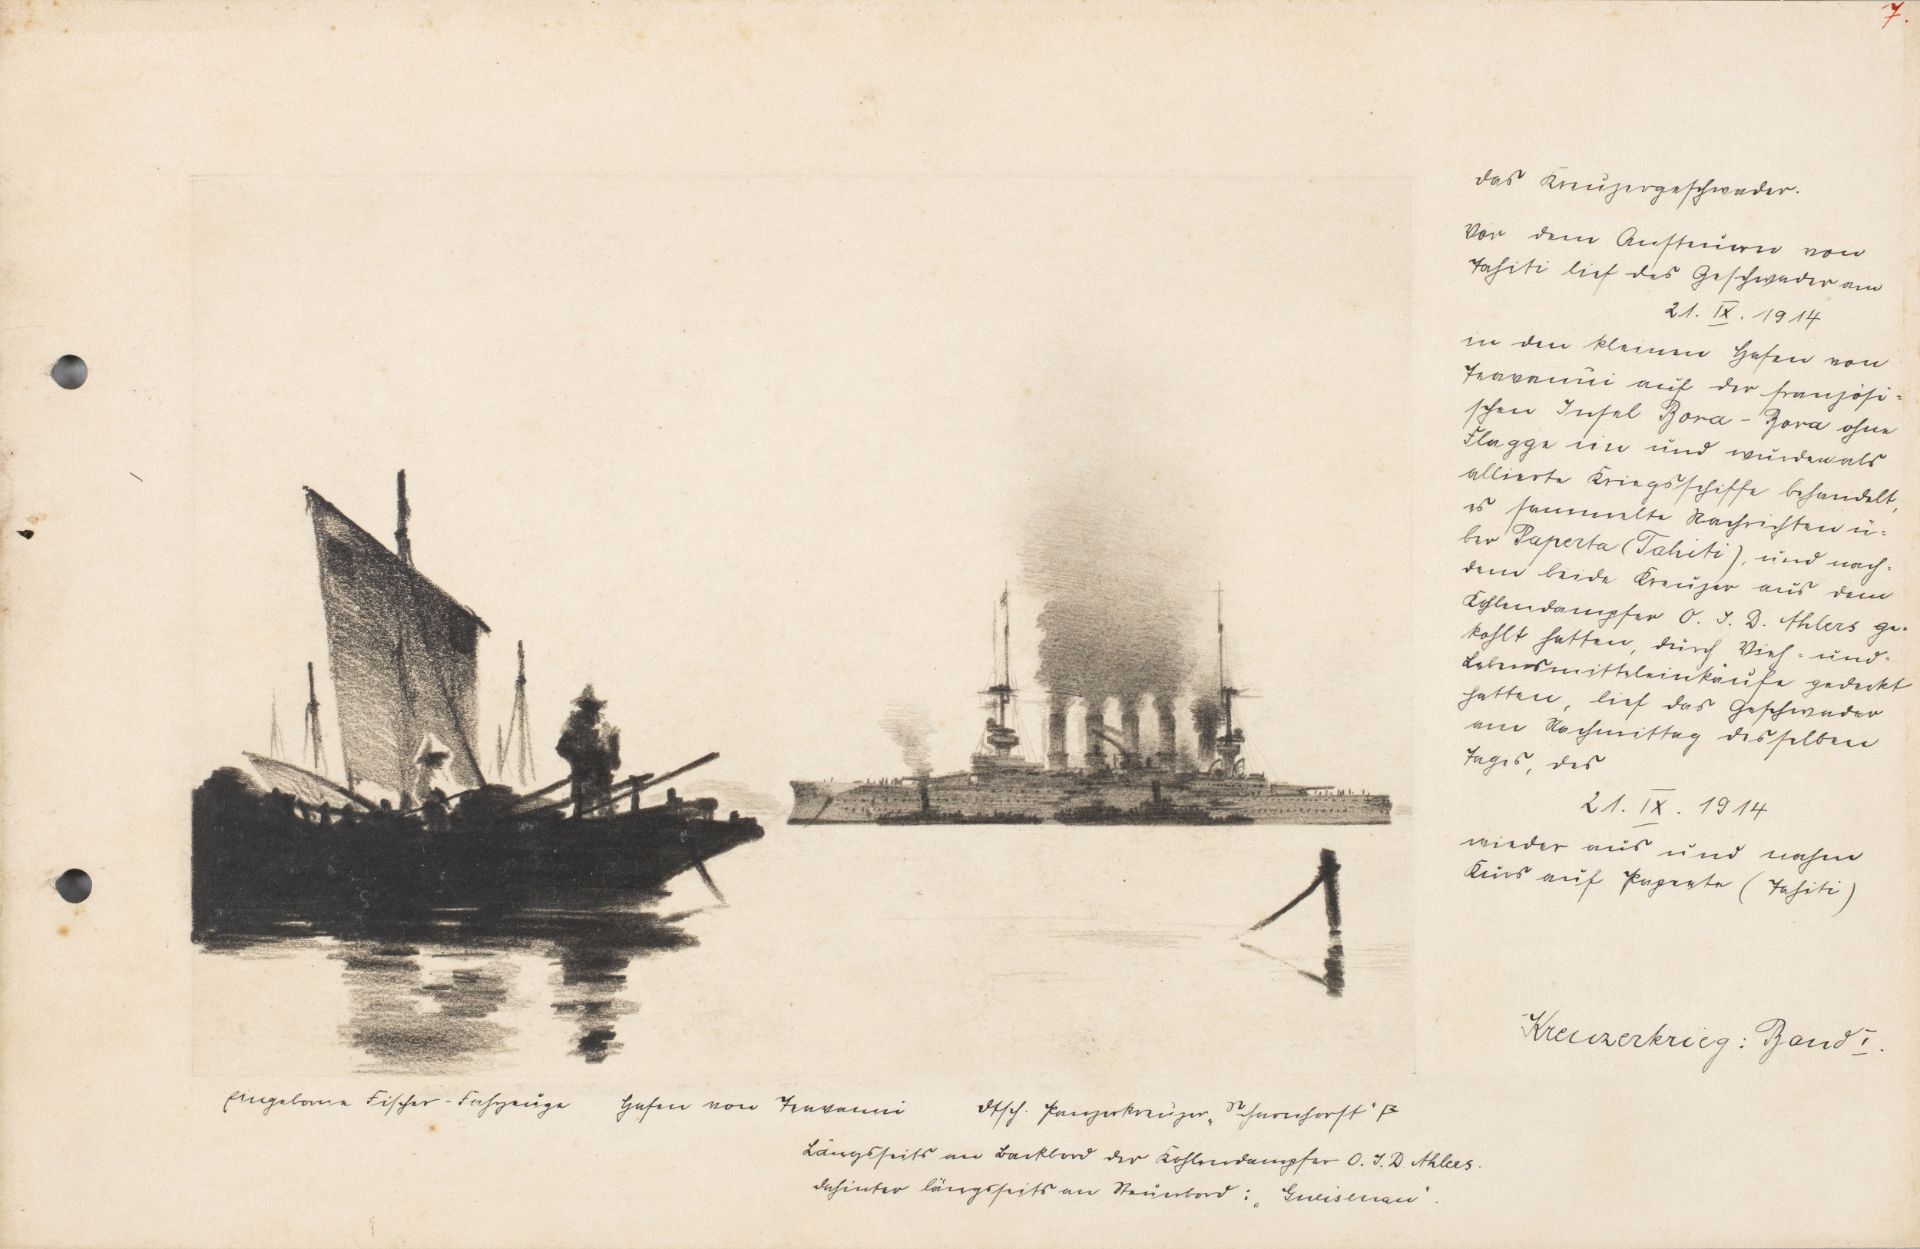 7.
das Kreuzergeschwader.
Vor dem Ansteuern von
Tahiti lief das Geschwader am
21. IX. 1914
in den kleinen Hafen von
Teavanui auf der französi-
schen Insel Bora-Bora ohne
Flagge ein und wurden als
alliierte Kriegsschiffe behandelt,
es sammelte Nachrichten ü-
ber Papeete (Tahiti), und nach-
dem beide Kreuzer aus dem
Kohlendampfer O. J. D. Ahlers ge-
kohlt hatten, durch Vieh- und-
Lebensmitteleinkäufe gedeckt
hatten, lief das Geschwader
am Nachmittag desselben
Tages, des
21. IX. 1914
wieder aus und nahm
Kurs auf Papeete (Tahiti)
Kreuzerkrieg: Band I.
Eingeborne Fischer-Fahrzeuge Hafen von Teavanui dtsch. Panzerkreuzer „Scharnhorst"
Längsseits an Backbord der Kohlendampfer O. J. D. Ahlers.
dahinter längsseits an Steuerbord: „Gneisenau".